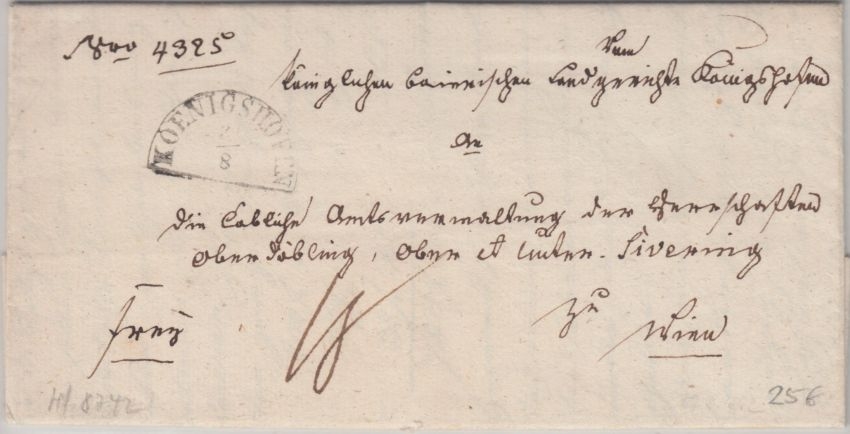 Nro 4325
Vom
königlichen baierischen Landgerichte Königshofen
KOENIGSHOFEN
8
An
die Löbliche Amtsverwaltung der Herrschaften
Oberdöbling, Ober et Unter-Sivering
zu
Wien
frey
256